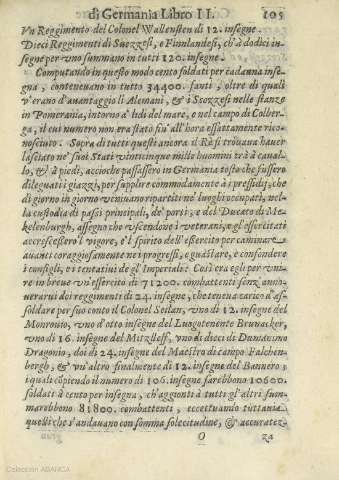 di Germania Libro II. 105
Vn Reggimento del Colonel Wallensten di 12. insegne.
Dieci Reggimenti di Suezzesi, e Finnlandesi, ch'à dodici in-
segne per vno summano in tutti 120. insegne.
Computando in questo modo cento soldati per cadauna inse-
gna, conteneuano in tutto 34400. fanti, oltre di quali
v'erano d'auantaggio li Alemani, & i Scozzesi nelle stanze
in Pomerania, intorno a' lidi del mare, e nel campo di Colber-
ga, il cui numero non era stato fiu' all'hora essattamente rico-
nosciuto. Sopra di tutti questi ancora il Rè si trouaua hauer
lasciato ne' suoi Stati vinticinque mille huomini trà à caual-
lo, & à piedi, acciochè passassero in Germania tosto che fussero
dileguati i giazzi, per supplire commodamente à i pressidij, che
di giorno in giorno veniuano ripartiti ne' luoghi occupati, nel-
la custodia di passi principali, de' porti, e del Ducato di Me-
kelenburgh, assegno che vscendone i veterani, negl'essercitati
accrescessero l'vigore, e'l spirito dell'essercito per caminare
auanti coraggiosamente ne i progressi, e guastare, e confondere
i consigli, e i tentatiui de gl'Imperiali: Così era egli per vni-
re in breue vn'essercito di 71200. combattenti senz'anno-
uerarui doi reggimenti di 24. insegne, che teneua carico d'as-
soldare per suo conto il Colonel Sedan, vno di 12. insegne del
Monrouio, vno d'otto insegne del Luogotenente Brunacker,
vno di 16. insegne del Mitzlaff, vno di dieci di Damianno
Dragonio, doi di 24. insegne del Maestro di campo Falchen-
bergh, & vn'altro finalmente di 12. insegne del Bannero,
i quali cõpiendo il numero di 106. insegne farebbono 10600.
soldati à cento per insegna, ch'aggionti à tutti gl'altri sum-
marebbono 81800. combattenti, eccettuando tuttauia
quelli che s'andauano con somma solecitudine, & accuratez-
O za
Colección ABANCA